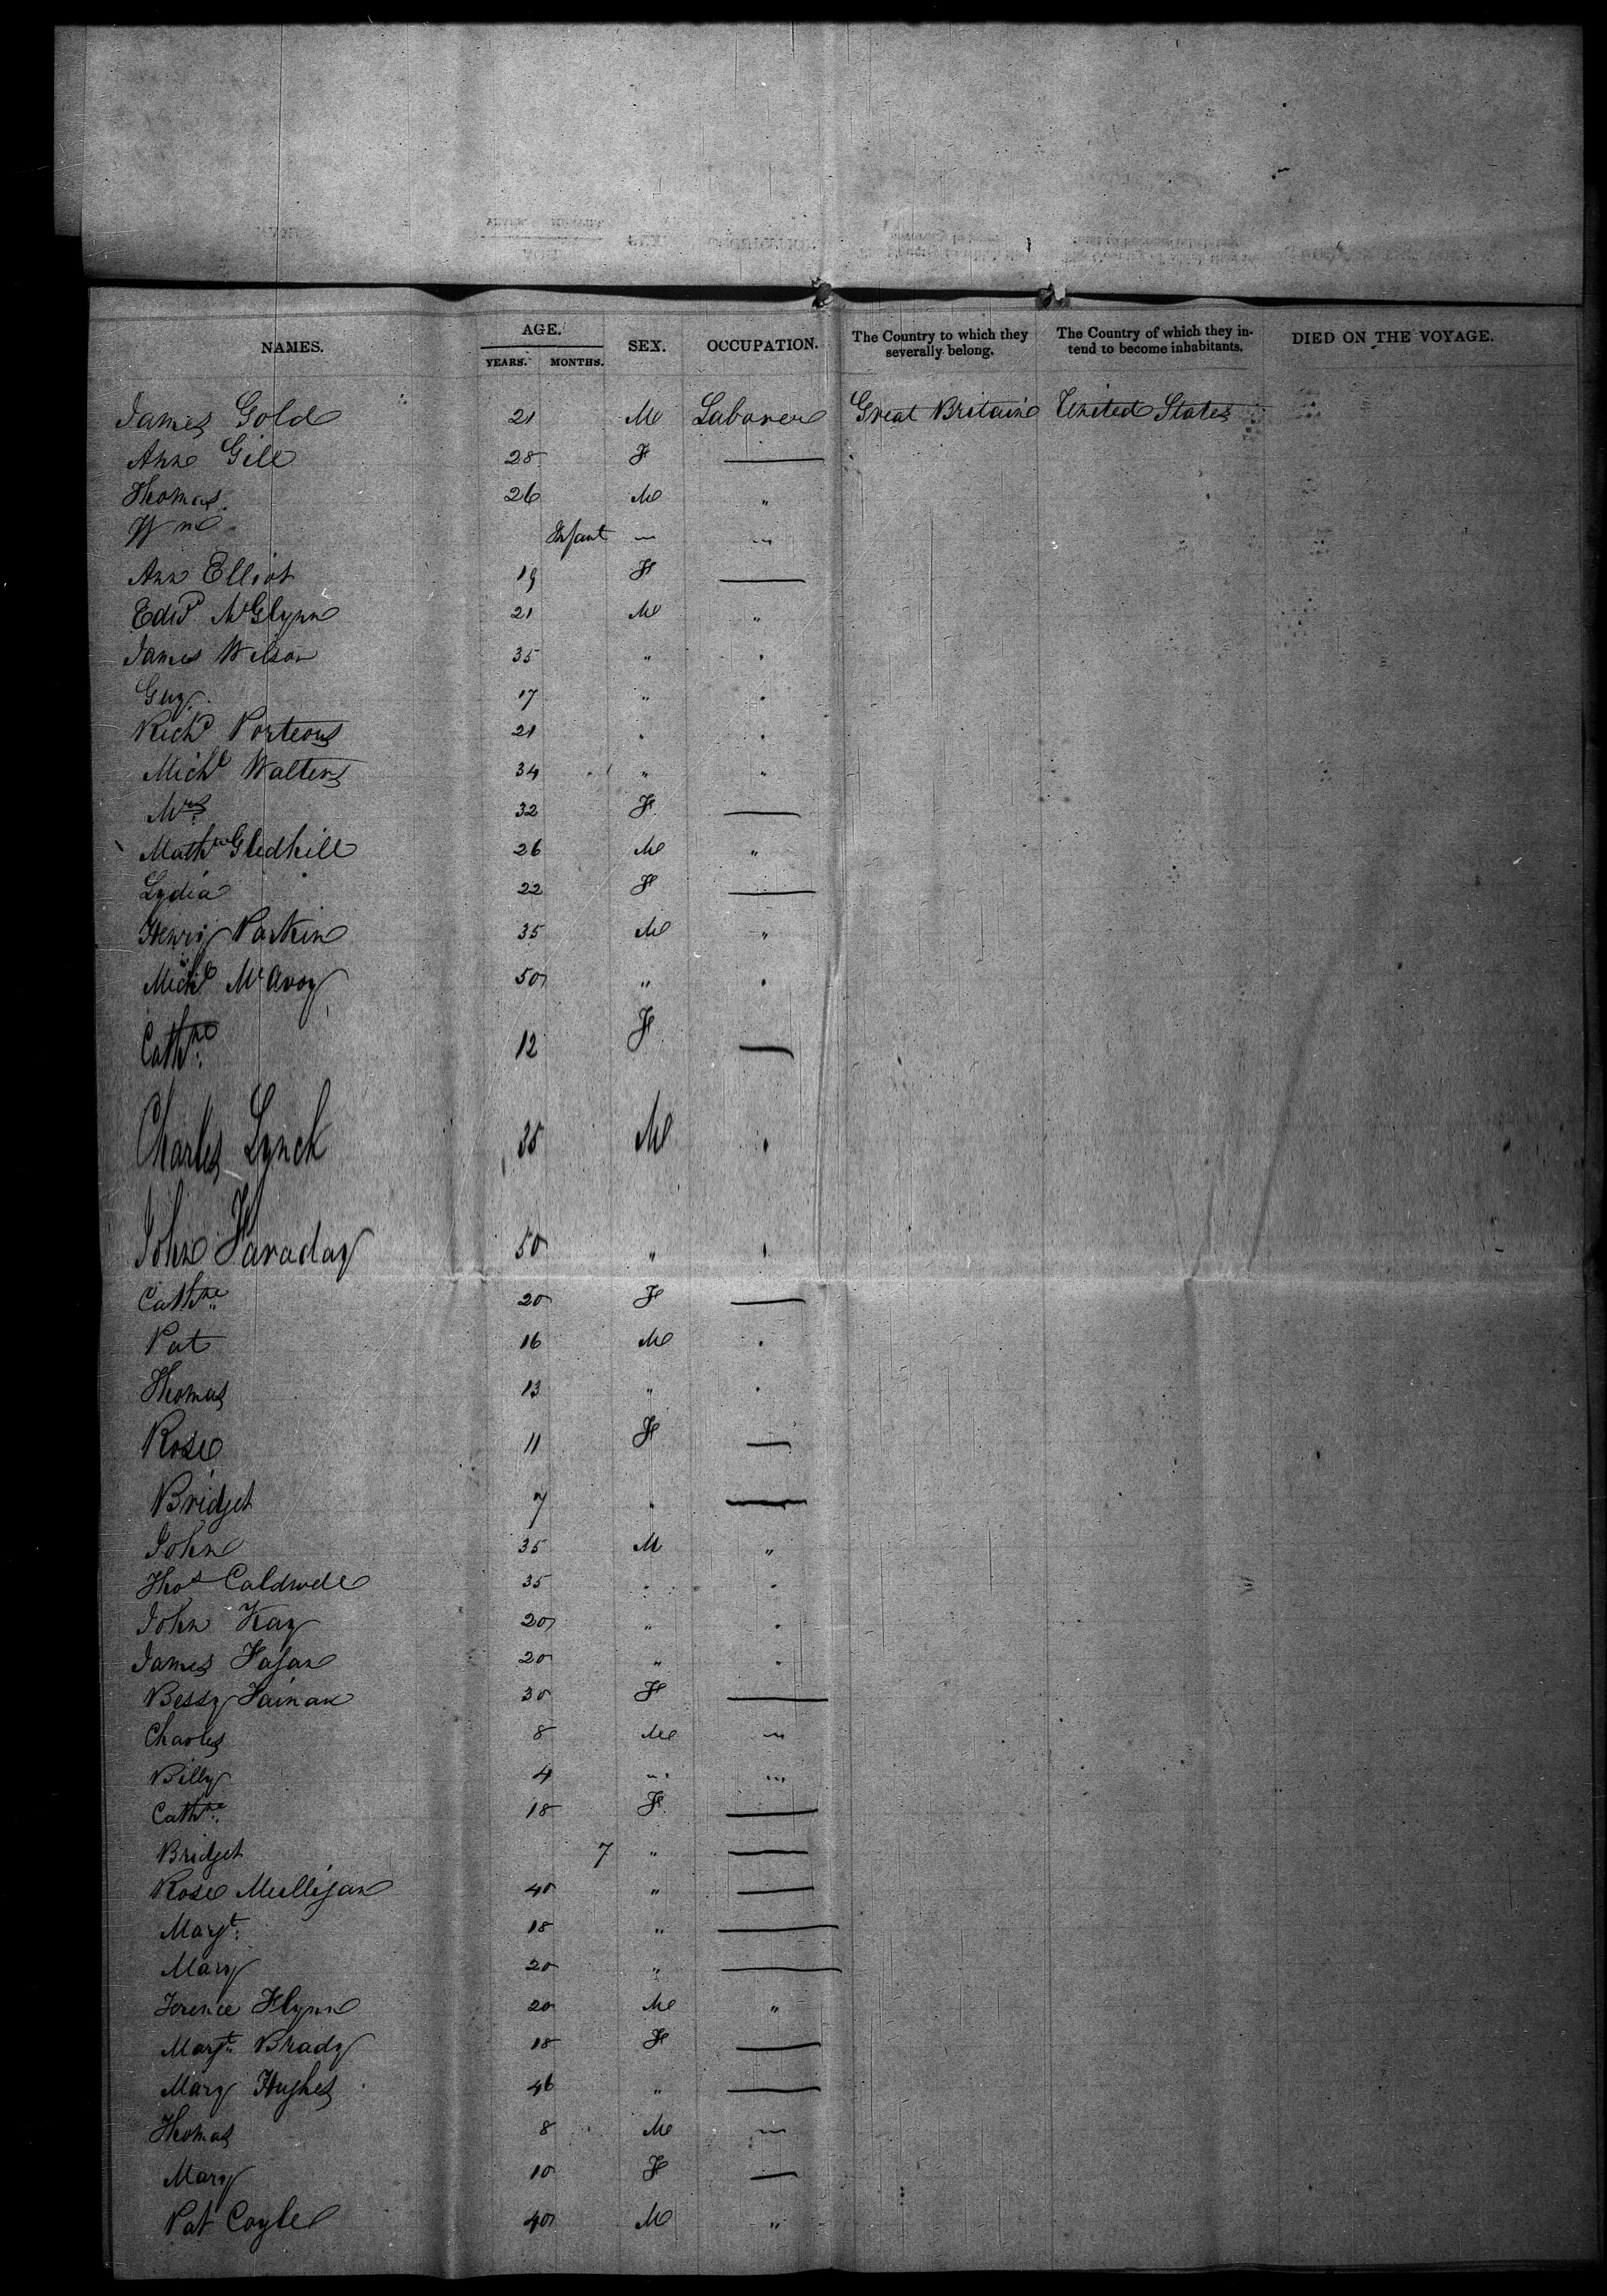 NAMES. AGE. YEARS. MONTHS. SEX. OCCUPATION. The Country to which they severally belong. The Country of which they intend to become inhabitants. DIED ON THE VOYAGE.
James Gold 21 M Laborer Great Britain United States
Ann Gill 28 F —
Thomas 26 M "
Wm Infant " "
Ann Elliot 19 F —
Edwd McGlynn 21 M "
James Wilson 35 " "
Guy 17 " "
Richd Porteous 21 " "
Michl Walters 34 " "
Mrs 32 F —
Mathw Gledhill 26 M "
Lydia 22 F —
Henry Parkin 35 M "
Michl McAvoy 50 " "
Cathne 12 F —
Charles Lynch 35 M "
John Faraday 50 " "
Cathne 20 F —
Pat 16 M "
Thomas 13 " "
Rose 11 F —
Bridget 7 " —
John 35 M "
Thos Caldwell 35 " "
John Kay 20 " "
James Fagan 20 " "
Bessy 30 F —
Charles 8 M "
Billy 4 " "
Cathne 18 F —
Bridget 7 " —
Rose Mulligan 40 " —
Margt 18 " —
Mary 20 " —
Terence Flynn 20 M "
Margt Brady 18 F —
Mary Hughes 46 " —
Thomas 8 M "
Mary 10 F —
Pat Coyle 40 M "